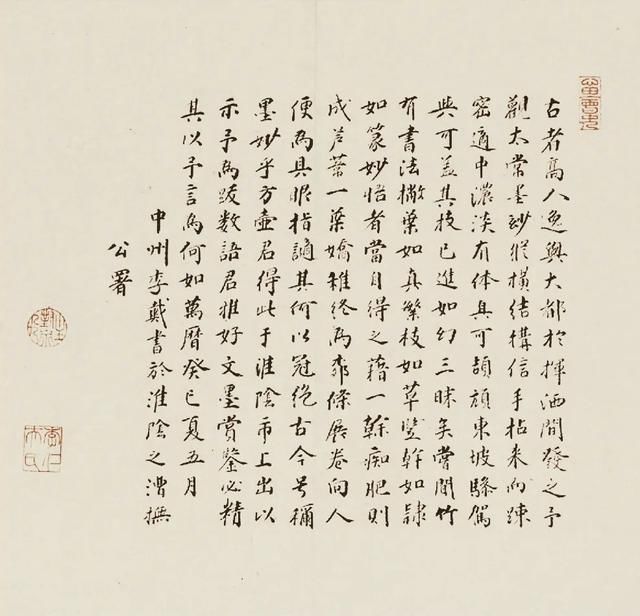 古者高人逸興大都於揮洒間發之予
觀太常墨妙縱橫結構信手拈来而踈
密適中濃淡有体真可頡頏東坡驂駕
與可盖其技已進如幻三昧矣嘗聞竹
有書法撇葉如真繁枝如草豎幹如隷
如篆妙悟者當自得之藉一幹痴肥則
成芦葦一葉嬌稚終為柰條展卷向人
便為具眼指謫其何以冠絶古今号稱
墨妙乎方壺君得此于淮陰市上出以
示予為跋数語君雅好文墨賞鑒必精
其以予言為何如萬曆癸巳夏五月
中州李戴書於淮陰之漕撫
公署